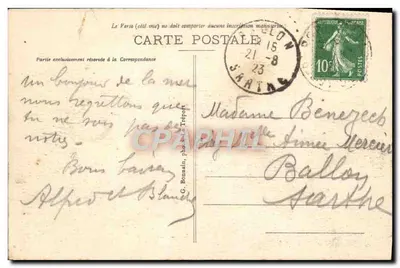 Le Recto (côté vue) ne doit comporter aucune inscription manuscrite
CARTE POSTALE
Partie exclusivement réservée à la Correspondance
un bonjour de la mer
nous regrettons que
tu ne sois pas des
nôtres.
Bons baisers
Alfred et Blanche
BALLON
15
21-8
23
SARTHE
10c
POSTES
CPAPHIL.COM
Madame Bénezech
Aimée Mercier
Ballon
Sarthe